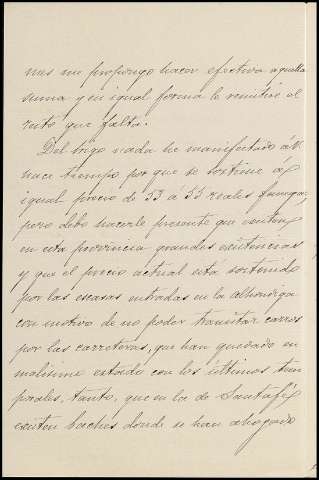 nas me propongo hacer efectiva aquella
suma y en igual forma le remitiré el
resto que falta.
Del trigo nada he manifestado á V.
hace tiempo por que se sostiene á
igual precio de 53 á 55 reales fanega,
pero debo hacerle presente que existen
en esta provincia grandes existencias
y que el precio actual esta sostenido
por las escasas entradas en la alhondiga
con motivo de no poder transitar carros
por las carreteras, que han quedado en
malisimo estado con los últimos tem
porales, tanto, que en la de Santafé
existen baches donde se han ahogado